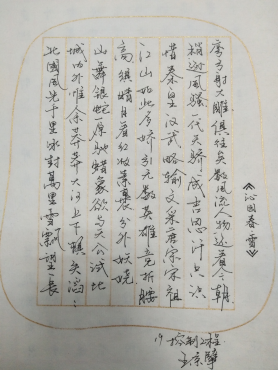 《沁园春雪》
北国风光千里冰封万里雪飘望长
城内外惟余莽莽大河上下顿失滔滔
山舞银蛇原驰蜡象欲与天公试比
高须晴日看红妆素裹分外妖娆
江山如此多娇引无数英雄竞折腰
惜秦皇汉武略输文采唐宗宋祖
稍逊风骚一代天骄成吉思汗只识
弯弓射大雕俱往矣数风流人物还看今朝
19 控制工程